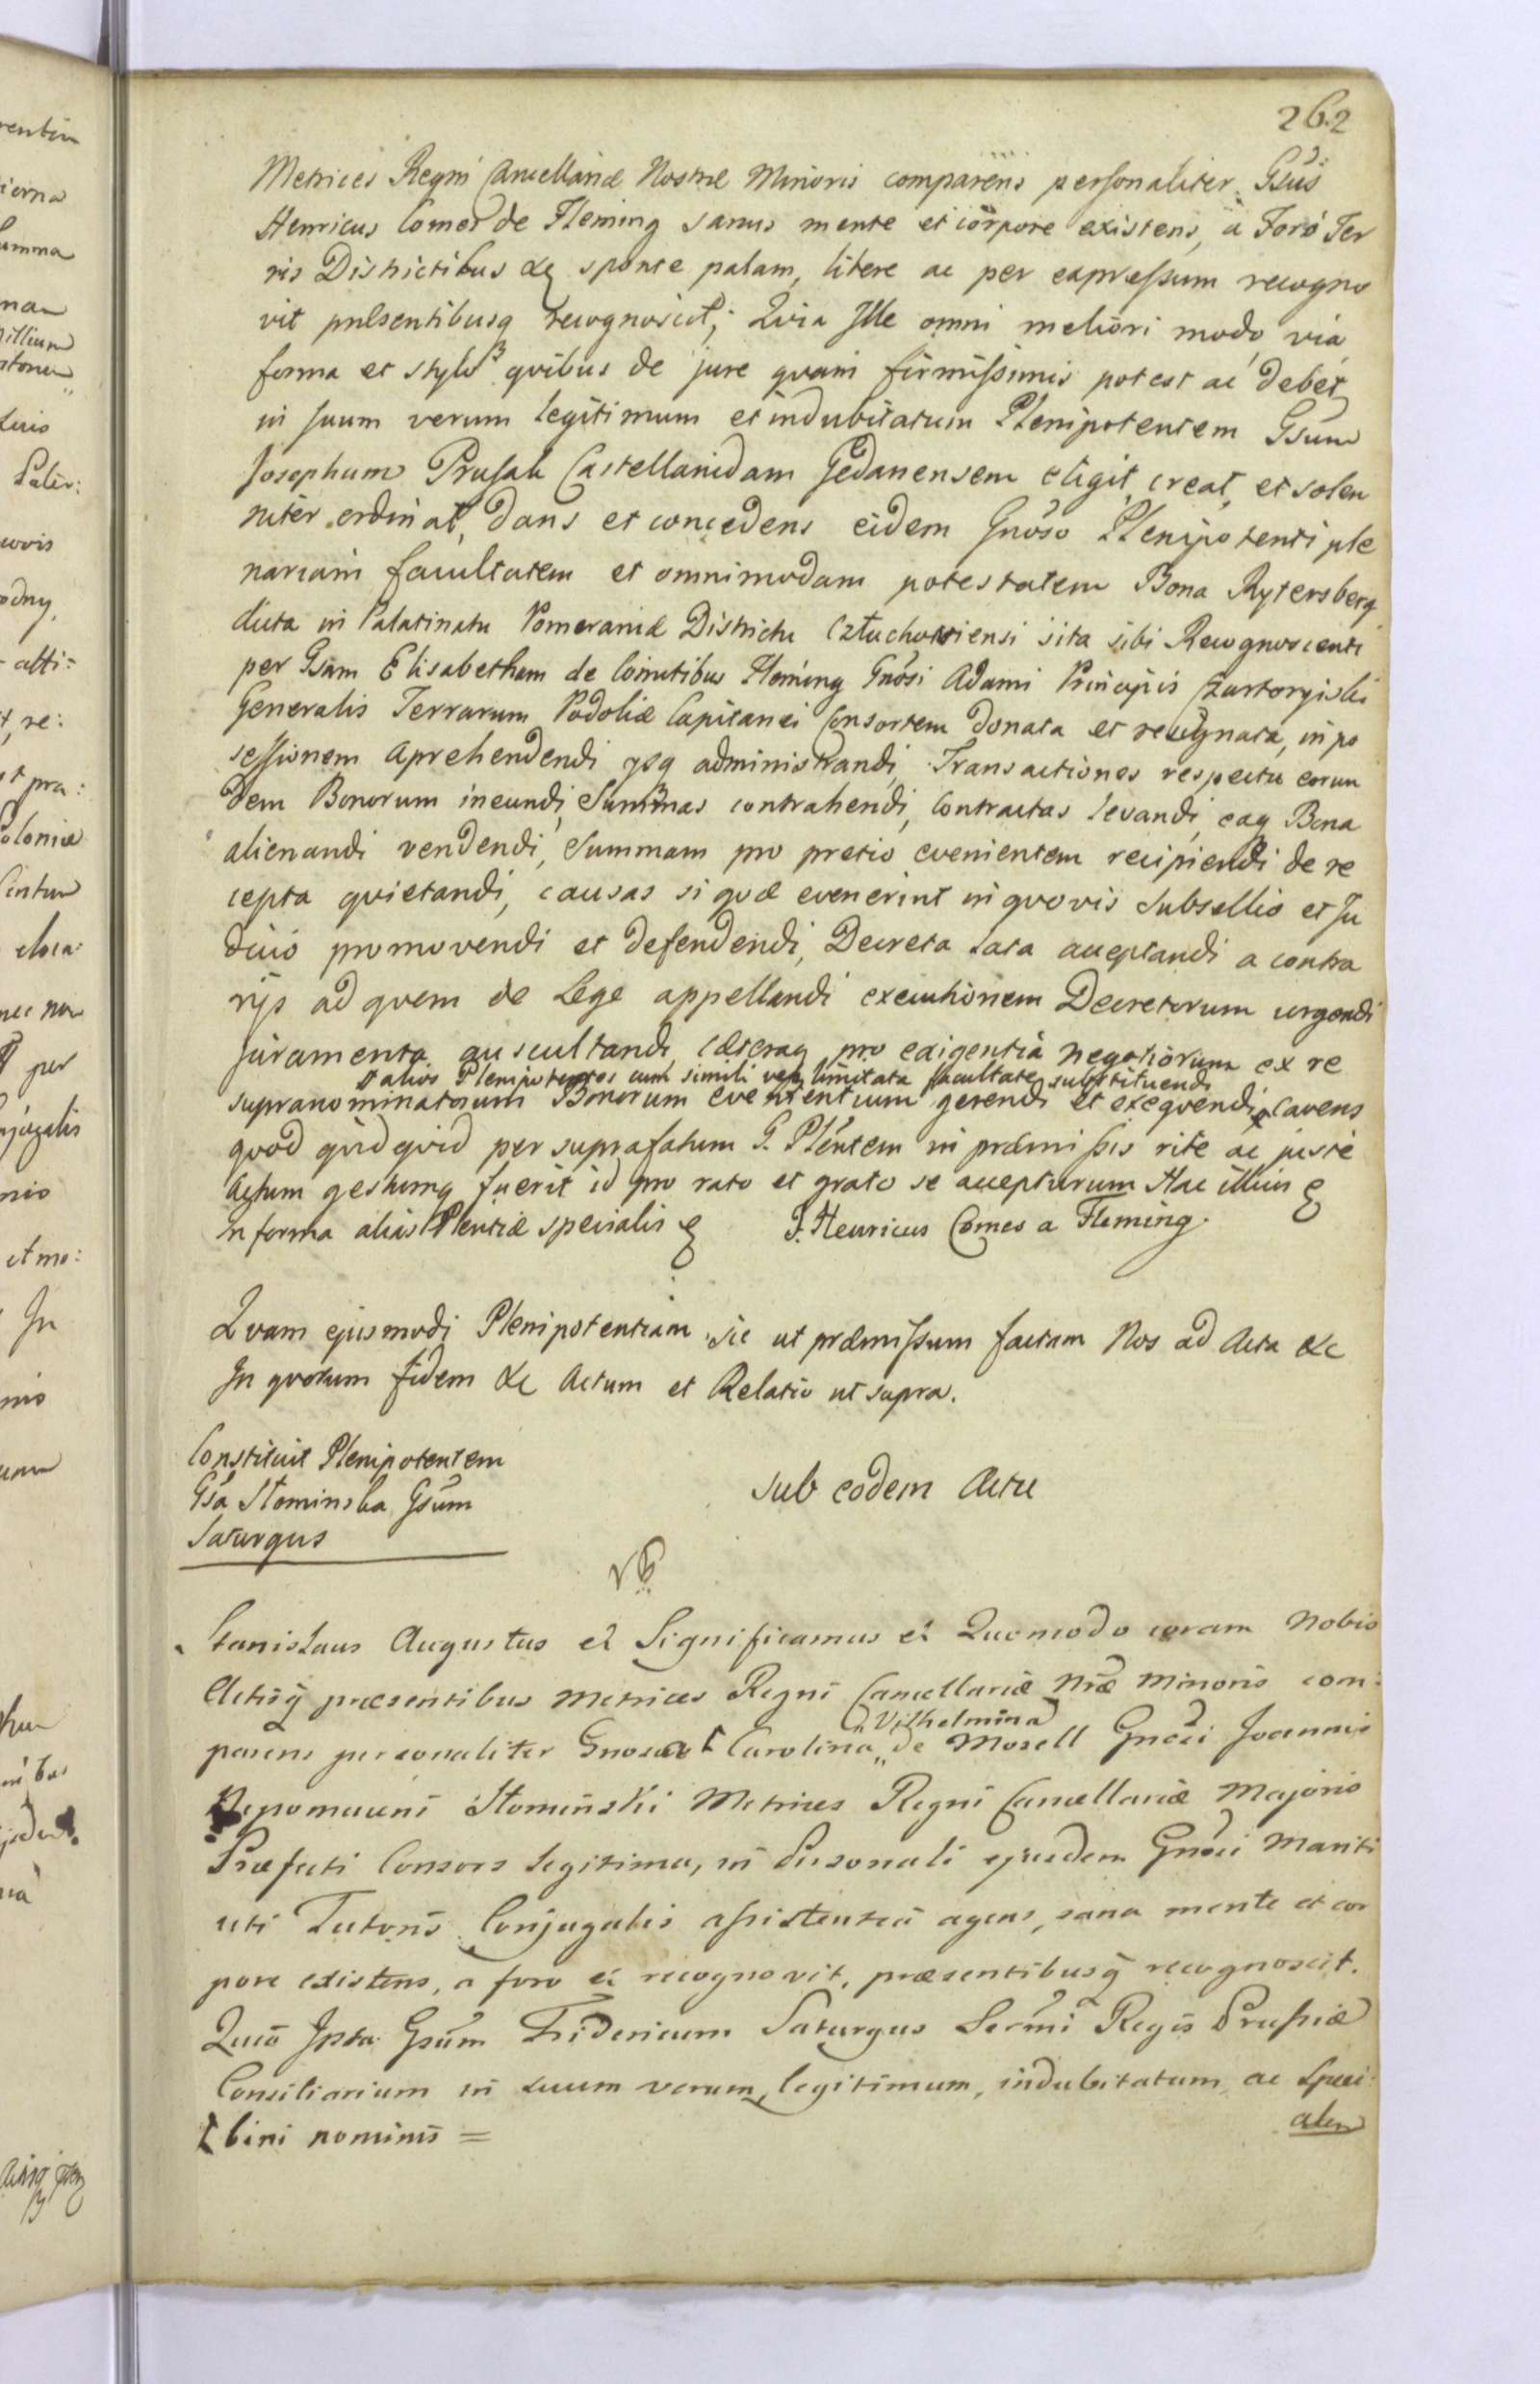 262
Metrices Regni Cancellariæ Nostræ Minoris comparens personaliter Gsus
Henricus Comes de Fleming sanus mente et corpore existens, a Foro Ter
ris Districtibus &c sponte palam, libere ac per expressum recogno
vit præsentibusq recognoscit; Qvia Ille omni meliori modo via
forma et stylo qvibus de jure qvam firmissimis potest ac debet
in suum verum legitimum et indubitatum Plenipotentem Gsum
Josephum Prusak Castellanidam Gedanensem eligit, creat, et solen
niter ordinat, dans et concedens eidem Gnoso Plenipotenti ple
nariam facultatem et omnimodam potestatem Bona Rytersberg
dicta in Palatinatu Pomeraniæ Districtu Człuchoviensi sita sibi Recognoscenti
per Gsam Elisabetham de Comitibus Fleming Gnosi Adami Principis Czartoryiski
Generalis Terrarum Podoliæ Capitanei Consortem donata et resignata, in po
sessionem aprehendendi ysq administrandi, Transactiones respectu eorun
dem Bonorum ineundi, Summas contrahendi, Contractas levandi, eaq Bona
alienandi vendendi, Summam pro pretio evenientem recipiendi de re
cepta qvietandi, causas si qvæ evenerint in qvovis Subsellio et Ju
dicio promovendi et defendendi, Decreta lata acceptandi a contra
rijs ad qvem de Lege appellandi executionem Decretorum urgendi
juramenta auscultandi cæteraq pro exigentia negotiorum ex re
alios Plenipotentes cum simili vel limitata facultate substituendi
supranominatorum Bonorum evenientium gerendi et exeqvendi, Cavens
qvod qvidqvid per suprafatum G. Pltentem in præmissis rite ac juste
Actum gestumq fuerit id pro rato et grato se accepturum Hac illius
In forma alias Pltentiæ specialis J. Henricus Comes a Fleming.
Qvam ejusmodi Plenipotentiam sic ut præmissum factam Nos ad Acta &c
In qvorum fidem &c Actum et Relatio ut supra.
Constituit Plenipotentem
Gsa Słominska Gsum
Saturgus
Sub eodem Actu
Stanislaus Augustus et Significamus et Quomodo coram Nobis
Actisq præsentibus Metrices Regni Cancellariæ Nræ Minoris com:
Vilhelmina
parens personaliter Gnosa Carolina de Mosell Gnosi Joannis
Nepomuceni Słominski Metrices Regni Cancellariæ Majoris
Præfecti Consors legitima, in Personali ejusdem Gnosi Mariti
uti Tutoris Conjugalis assistentia agens, sana mente et cor
pore existens, a foro et recognovit, præsentibusq recognoscit.
Quia Ipsa Gsum Fridericum Saturgus Sermi Regis Prussiæ
Consiliarium in suum verum, legitimum, indubitatum, ac Speci:
bini nominis =
alem